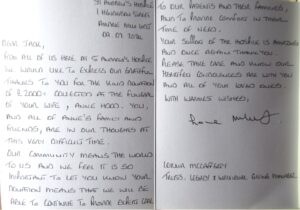 St Andrew's Hospice
1 Henderson Street
Airdrie
Dear Jack,
For all of us here at St Andrew's Hospice
we would like to express our grateful
thanks to you for the kind donation
of collected at the funeral
of your wife, Anne Hood. You,
and all of Anne's family and
friends, are in our thoughts at
this very difficult time.
Our community means the world
to us and we feel it is so
important to let you know your
donation means that we will be
able to continue to provide expert care
to our patients and their families
and to provide comfort in their
time of need.
Your support of the hospice is
and once again thank you.
Please take care and know our
heartfelt condolences are with you
and all of your loved ones.
With warmest wishes,
Lorna McCafferty
Trusts, Legacy & Individual Giving Manager